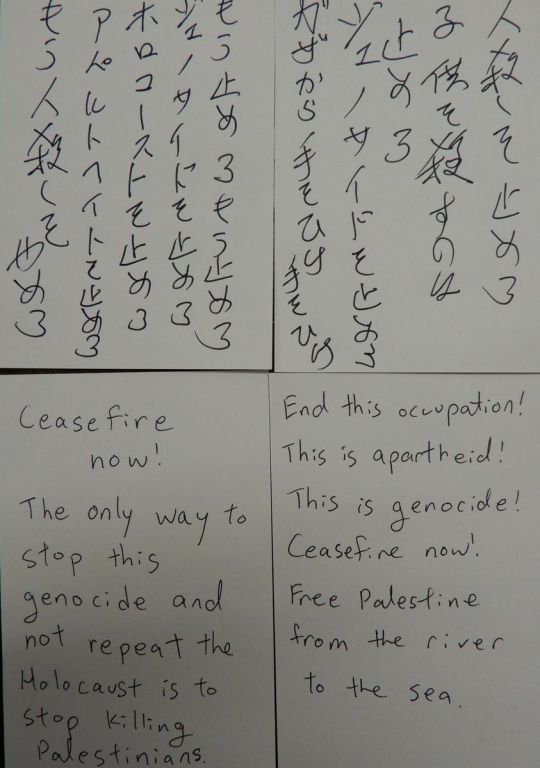 人殺しを止めろ
子供を殺すのは
止めろ
ジェノサイドを止めろ
ガザから手をひけ手をひけ
もう止めろもう止めろ
ジェノサイドを止めろ
ホロコーストを止めろ
アパルトヘイトを止めろ
もう人殺しをやめろ
Ceasefire
now!
The only way to
stop this
genocide and
not repeat the
Holocaust is to
stop killing
Palestinians.
End this occupation!
This is apartheid!
This is genocide!
Ceasefire now!
Free Palestine
from the river
to the sea.